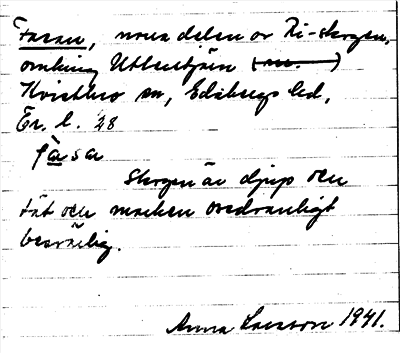 Fasan, norra delen av Ri-skogen,
omkring Uttertjärn
Kvistbro sn, Edsbergs hd,
Er. l. 28
fàsa
Skogen är djup och
tät och marken ovedranligt
besvärlig.
Anna Larsson 1941.